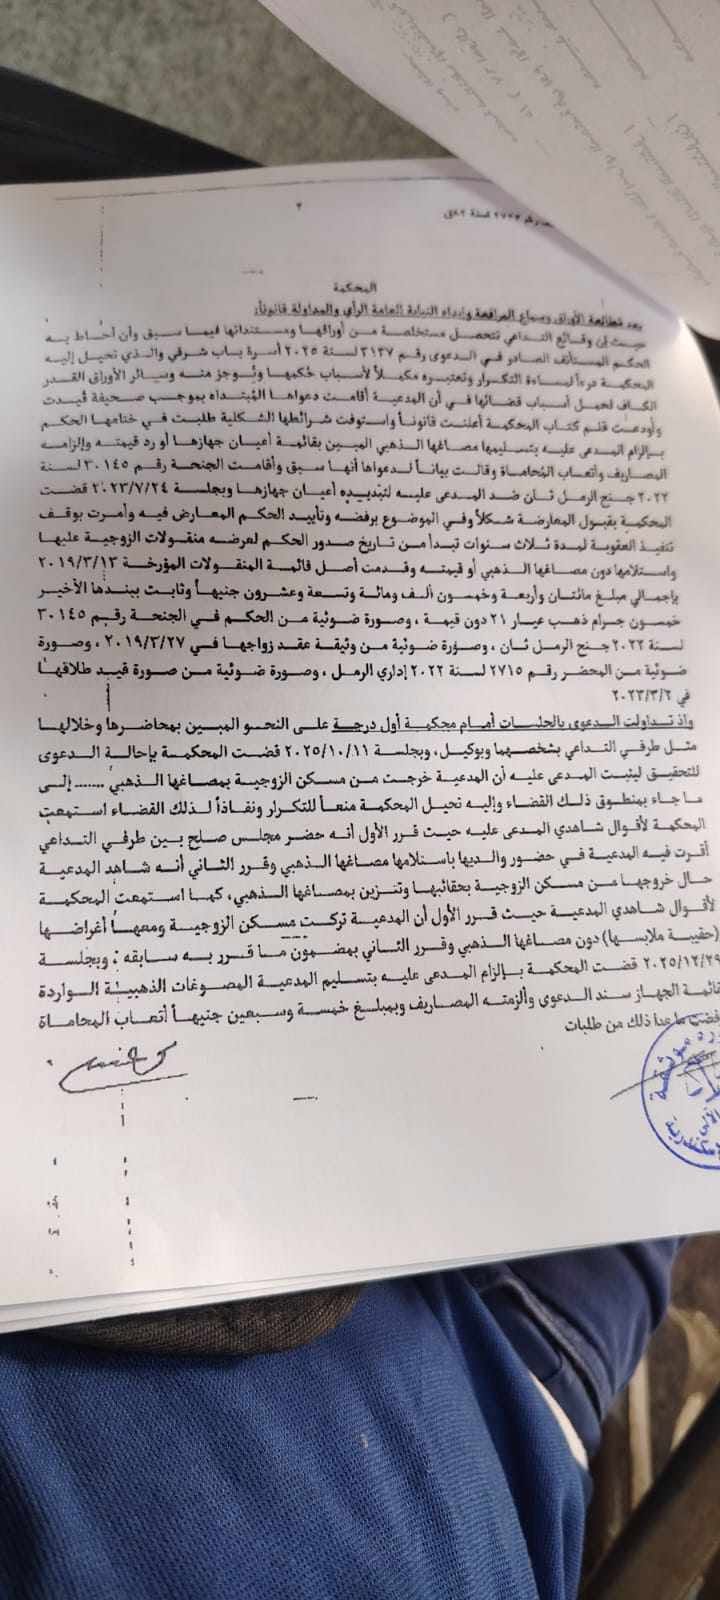 ٢
رقم ٢٧٢٣ لسنة ٨٢ق
المحكمة
بعد مطالعة الأوراق وسماع المرافعة وإبداء النيابة العامة الرأي والمداولة قانوناً:
حيث إن وقائع التداعي تتحصل مستخلصة من أوراقها ومستنداتها فيما سبق وأن أحاط به
الحكم المستأنف الصادر في الدعوى رقم ٣١٣٧ لسنة ٢٠٢٥ أسرة باب شرقي والذي تحيل إليه
المحكمة درءاً لمساءة التكرار وتعتبره مكملاً لأسباب حُكمها ويُوجز منه وسائر الأوراق القدر
الكاف لحمل أسباب قضائها في أن المدعية أقامت دعواها المُبتداه بموجب صحيفة قُيدت
وأودعت قلم كتاب المحكمة أعلنت قانوناً واستوفت شرائطها الشكلية طلبت في ختامها الحكم
بإلزام المدعى عليه بتسليمها مصاغها الذهبي المبين بقائمة أعيان جهازها أو رد قيمته وإلزامه
المصاريف وأتعاب المُحاماة وقالت بياناً لدعواها أنها سبق وأقامت الجنحة رقم ٣٠١٤٥ لسنة
٢٠٢٢ جنح الرمل ثان ضد المدعى عليه لتبديده أعيان جهازها وبجلسة ٢٠٢٣/٧/٢٤ قضت
المحكمة بقبول المعارضة شكلاً وفي الموضوع برفضه وتأييد الحكم المعارض فيه وأمرت بوقف
تنفيذ العقوبة لمدة ثلاث سنوات تبدأ من تاريخ صدور الحكم لعرضه منقولات الزوجية عليها
واستلامها دون مصاغها الذهبي أو قيمته وقدمت أصل قائمة المنقولات المؤرخة ٢٠١٩/٣/١٣
بإجمالي مبلغ مائتان وأربعة وخمسون ألف ومائة وتسعة وعشرون جنيهاً وثابت ببندها الأخير
خمسون جرام ذهب عيار ٢١ دون قيمة ، وصورة ضوئية من الحكم في الجنحة رقيم ٣٠١٤٥
لسنة ٢٠٢٢ جنح الرمل ثان ، وصورة ضوئية من وثيقة عقد زواجها في ٢٠١٩/٣/٢٧ ، وصورة
ضوئية من المحضر رقم ٢٧١٥ لسنة ٢٠٢٢ إداري الرمل ، وصورة ضوئية من صورة قيد طلاقها
في ٢٠٢٣/٣/٢
وإذ تداولت الدعوى بالجلسات أمام محكمة أول درجة على النحو المبين بمحاضرها وخلالها
مثل طرفي التداعي بشخصهما وبوكيل، وبجلسة ٢٠٢٥/١٠/١١ قضت المحكمة بإحالة الدعوى
للتحقيق ليثبت المدعى عليه أن المدعية خرجت من مسكن الزوجية بمصاغها الذهبي ....... إلى
ما جاء بمنطوق ذلك القضاء وإليه نحيل المحكمة منعاً للتكرار ونفاذاً لذلك القضاء استمعت
المحكمة لأقوال شاهدي المدعى عليه حيث قرر الأول أنه حضر مجلس صلح بين طرفي التداعي
أقرت فيه المدعية في حضور والديها باستلامها مصاغها الذهبي وقرر الثاني أنه شاهد المدعية
حال خروجها من مسكن الزوجية بحقائبها وتتزين بمصاغها الذهبي، كما استمعت المحكمة
لأقوال شاهدي المدعية حيث قرر الأول أن المدعية تركت مسكن الزوجية ومعها أغراضها
(حقيبة ملابسها) دون مصاغها الذهبي وقرر الثاني بمضمون ما قرر به سابقه ، وبجلسة
٢٠٢٥/١٢/٢٩ قضت المحكمة بإلزام المدعى عليه بتسليم المدعية المصوغات الذهبية الواردة
قائمة الجهاز سند الدعوى وألزمته المصاريف وبمبلغ خمسة وسبعين جنيهاً أتعاب المحاماة
رفضت ما عدا ذلك من طلبات